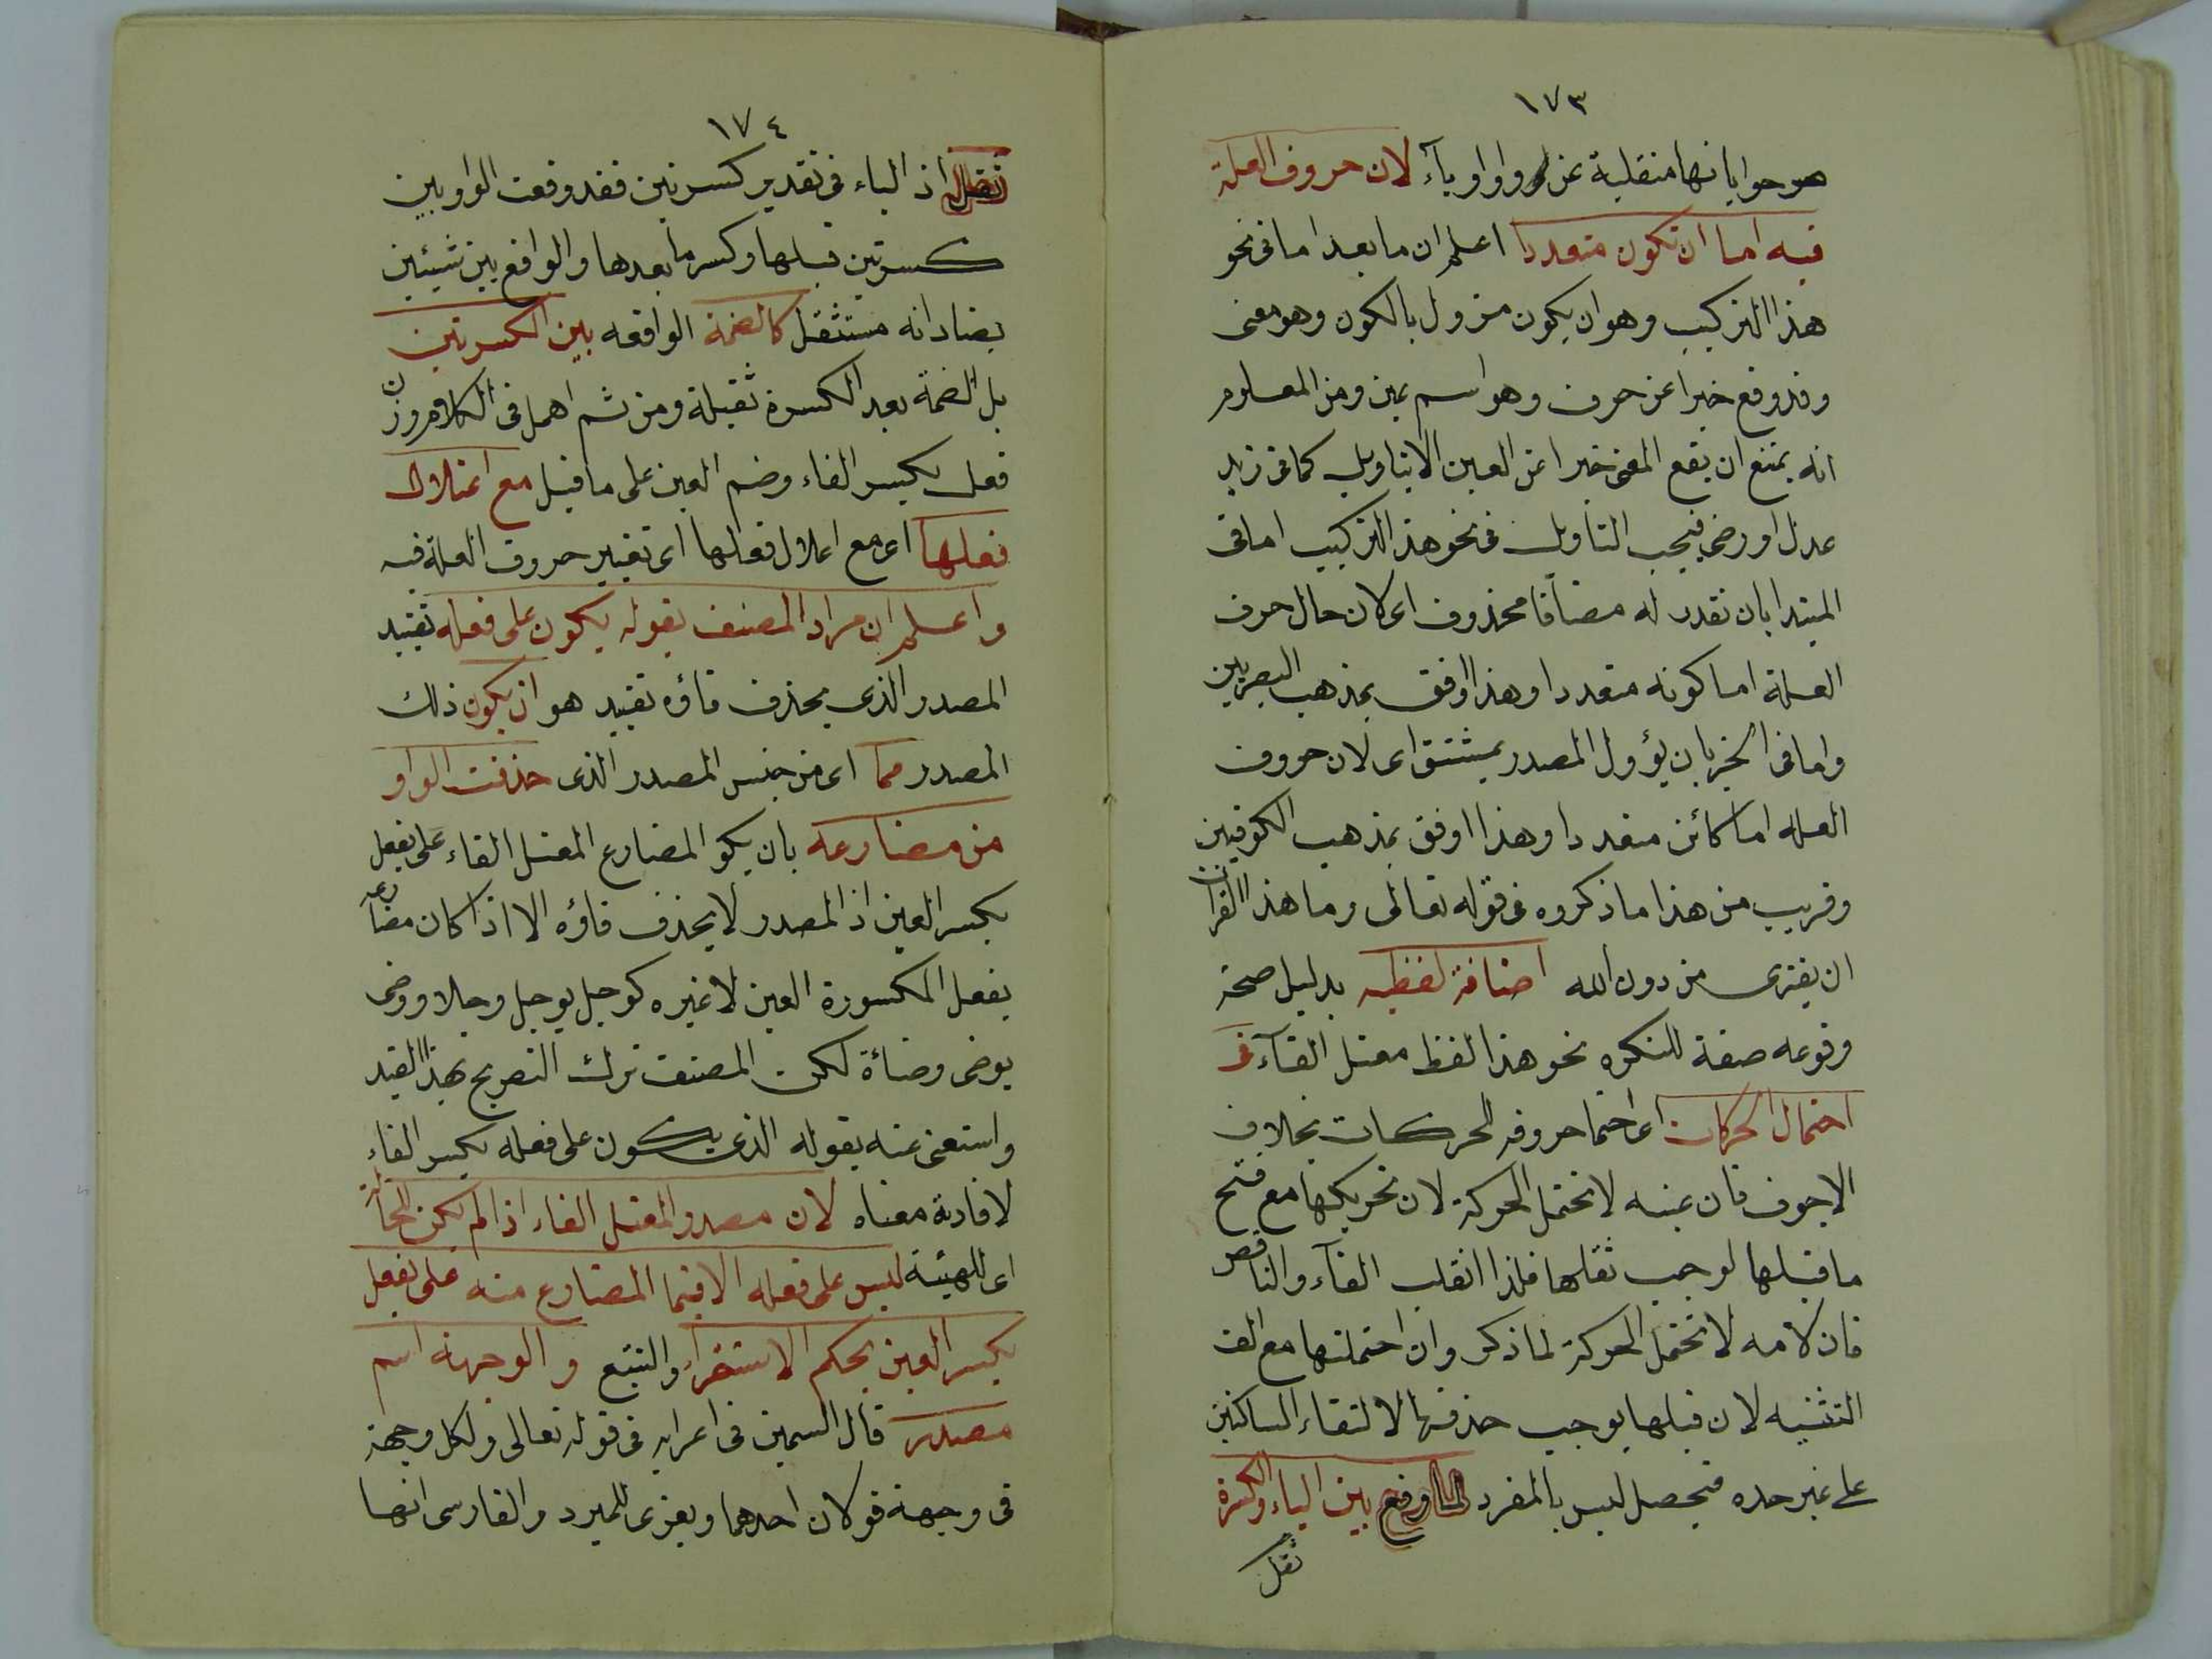 ١٧٣
صرحوا بانها منقلبة عن واو او ياء لان حروف العلة
فيه اما ان تكون متعددا اعلم ان ما بعد اما فى نحو
هذا التركيب وهو ان يكون مزول بالكون وهو معنى
وقد وقع خبرا عن حرف وهو اسم عين ومن المعلوم
انه يمتنع ان يقع المعنى خبرا عن العين الا بتاويل كما فى زيد
عدل او رضى فيجب التاويل فى نحو هذ التركيب اما فى
المبتدا بان نقدر له مضافا محذوف اى لان حال حرف
العلة اما كونه متعددا وهذا اوفق بمذهب البصريين
واما فى الخبر بان يؤول المصدر بمشتق اى لان حروف
العله اما كائن متعددا وهذا اوفق بمذهب الكوفيين
وقريب من هذا ما ذكروه فى قوله تعالى وما هذا القران
ان يفترى من دون الله اضافة لفظيه بدليل صحة
وقوعه صفة للنكره نحو هذا لفظ معتل الفآء فى
احتمال الحركات اى احتما حروفه الحركات بخلاف
الاجوف فان عينه لا تحتمل الحركة لان تحريكها مع فتح
ما قبلها لوجب ثقلها فلذا انقلب الفآء والناقص
فان لامه لا تحتمل الحركة لما ذكر وان احتملتها مع الف
التثنيه لان قبلها يوجب حذفها لالتقاء الساكنين
على غير حده فيحصل لبس بالمفرد لما وقع بين الياء والكسرة
ثقل
١٧٤
ثقل اذ الياء فى تقدير كسرتين فقد وقعت الواو بين
كسرتين قبلها وكسر ما بعدها والواقع بين شيئين
يضادانه مستثقل كالضمة الواقعه بين الكسرتين
بل الضمة بعد الكسرة ثقيلة ومن ثم اهمل فى الكلام وزن
فعل بكسر الفاء وضم العين على ما قيل مع اعتلال
فعلها اى مع اعلال فعلها اى تغيير حروف العلة فيه
واعلم ان مراد المصنف بقوله يكون على فعله تقييد
المصدر الذى يحذف فاؤه تقييد هو ان يكون ذلك
المصدر مما اى من جنس المصدر الذى حذفت الواو
من مضارعه بان يكو المضارع المعتل الفاء على يفعل
بكسر العين اذ المصدر لا يحذف فاؤه الا اذا كان مضارعه
يفعل المكسورة العين لا غيره كوجل يوجل وجلا ووضى
يوضى وضاءة لكن المصنف ترك التصريح بهذ القيد
واستغنى عنه بقوله الذى يكون على فعله بكسر الفاء
لافادته معناه لان مصدر المعتل الفاء اذا لم يكن للحالة
اى للهيئة ليس على فعله الا فيما المضارع منه على يفعل
بكسر العين بحكم الاستقراء والتتبع والوجهة اسم
مصدر قال السمين فى اعرابه فى قوله تعالى ولكل وجهة
فى وجهة قولان احدهما ويعزى للمبرد والفارسى انها